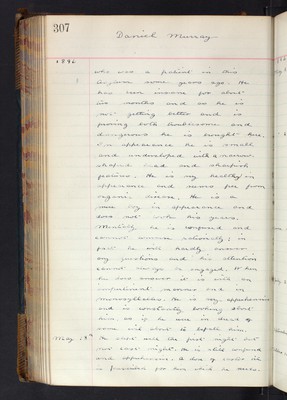 307
Daniel Murray
1896
who was a patient in this
some years ago. He
has been insane for about
six months and as he is
not getting better and is
proving both troublesome and
dangerous he is brought here.
In appearance he is small
and undeveloped with a narrow
shaped head and sheepish
features. He is very healthy in
appearance and seems free from
organic disease. He is a
mere boy in appearance and
does not look his years.
Mentally he is confused and
cannot answer rationally; in
fact he will hardly answer
any questions and his attention
cannot always be engaged. When
he does answer it is with an
manner and in
monosyllables. He is very apprehensive
and is constantly looking about
him as if he was in dread of
some evil about to befall him.
May 13th He slept well the first night but
not last night. He is still confused
and apprehensive. A dose of
is prescribed for him which he